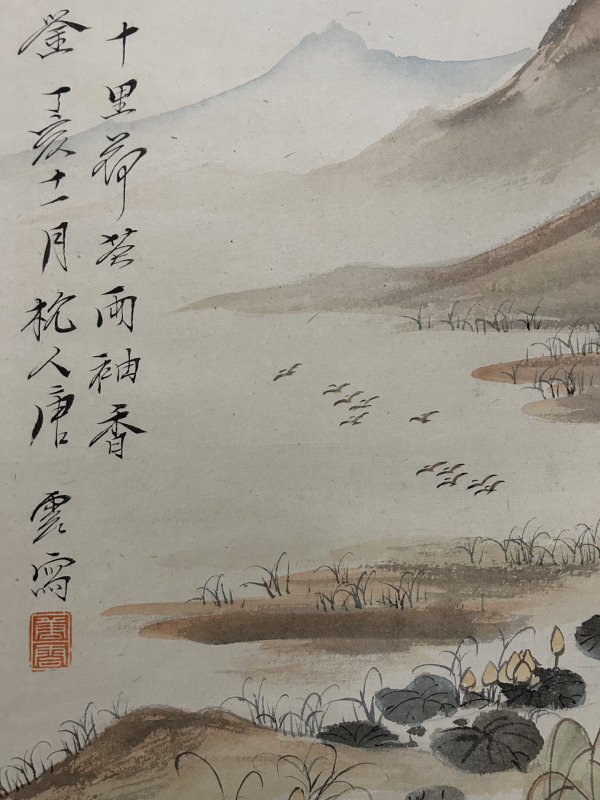 十里荷花兩袖香
丁亥十一月杭人唐雲寫